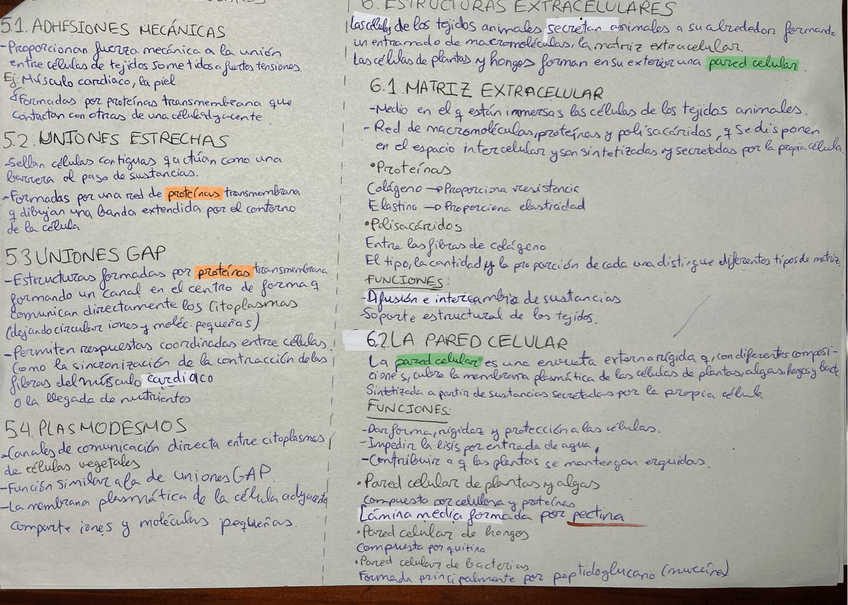 5.1. ADHESIONES MECÁNICAS
-Proporcionan fuerza mecánica a la unión
entre células de tejidos sometidos a fuertes tensiones.
Ej: Músculo cardiaco, la piel
Formadas por proteínas transmembrana que
contactan con otras de una célula adyacente
5.2. UNIONES ESTRECHAS
-Sellan células contiguas q actúan como una
barrera al paso de sustancias.
-Formadas por una red de proteínas transmembrana
q dibujan una banda extendida por el contorno
de la célula
5.3 UNIONES GAP
-Estructuras formadas por proteínas transmembrana
formando un canal en el centro de forma q
comunican directamente los citoplasmas
(dejando circular iones y moléc. pequeñas)
-Permiten respuestas coordinadas entre células,
como la sincronización de la contracción de las
fibras del músculo cardiaco
o la llegada de nutrientes
5.4. PLASMODESMOS
-Canales de comunicación directa entre citoplasmas
de células vegetales
-Función similar a la de uniones GAP
-La membrana plasmática de la célula adyacente
comparte iones y moléculas pequeñas.
6. ESTRUCTURAS EXTRACELULARES
Las células de los tejidos animales secretan animales a su alrededor formando
un entramado de macromoléculas, la matriz extracelular.
Las células de plantas y hongos forman en su exterior una pared celular.
6.1 MATRIZ EXTRACELULAR
-Medio en el q están inmersas las células de los tejidos animales.
-Red de macromoléculas, proteínas y polisacáridos, q se disponen
en el espacio intercelular y son sintetizadas y secretadas por la propia célula
•Proteínas
Colágeno →Proporciona resistencia
Elastina →Proporciona elasticidad
•Polisacáridos
Entre las fibras de colágeno
El tipo, la cantidad y la proporción de cada una distingue diferentes tipos de matriz
FUNCIONES:
-Difusión e intercambio de sustancias
-Soporte estructural de los tejidos.
6.2 LA PARED CELULAR
La pared celular es una envuelta externa rígida q, con diferentes composi-
ciones, cubre la membrana plasmática de las células de plantas, algas, hongos y bact.
Sintetizada a partir de sustancias secretadas por la propia célula
FUNCIONES:
-Dar forma, rigidez y protección a las células.
-Impedir la lisis por entrada de agua,
-Contribuir a q las plantas se mantengan erguidas.
•Pared celular de plantas y algas
Compuesta por celulosa y proteínas
Lámina media formada por pectina
•Pared celular de hongos
Compuesta por quitina
•Pared celular de bacterias
Formada principalmente por peptidoglucano (mureína)